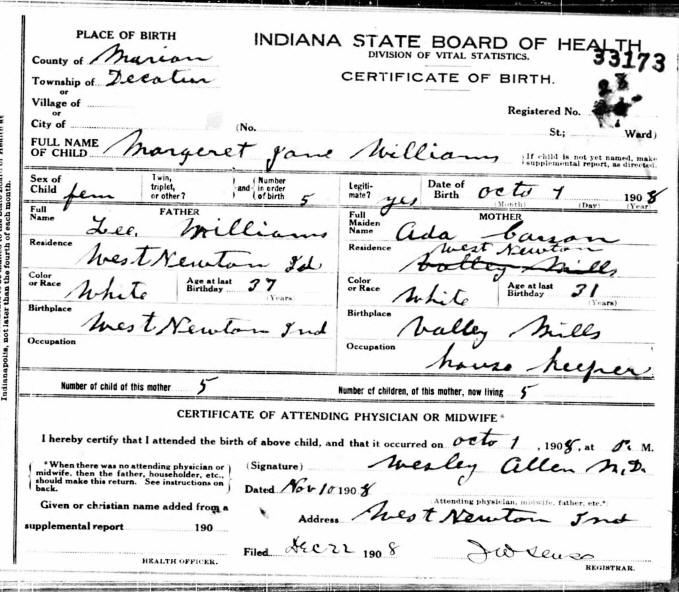 PLACE OF BIRTH
INDIANA STATE BOARD OF HEALTH
33173
DIVISION OF VITAL STATISTICS.
CERTIFICATE OF BIRTH.
County of Marion
Township of Decatur
or
Village of
or
City of
Registered No.
(No. St.; Ward)
FULL NAME OF CHILD Margaret Jane Williams
{If child is not yet named, make supplemental report, as directed.
Sex of Child fem
Twin, triplet, or other?
and
Number in order of birth 5
Legiti-mate? yes
Date of Birth Octo 1 1908
(Month) (Day) (Year)
FATHER
Full Name Lee Williams
Residence West Newton Id
Color or Race White
Age at last Birthday 37
(Years
Birthplace West Newton Ind
Occupation
MOTHER
Full Maiden Name Ada Carson
Residence West Newton
Valley Mills
Color or Race White
Age at last Birthday 31
(Years)
Birthplace Valley Mills
Occupation house keeper
Number of child of this mother 5
Number of children, of this mother, now living 5
CERTIFICATE OF ATTENDING PHYSICIAN OR MIDWIFE*
I hereby certify that I attended the birth of above child, and that it occurred on Octo 1, 1908, at M.
*When there was no attending physician or
midwife, then the father, householder, etc.,
should make this return. See instructions on
back.
(Signature) Wesley Allen M.D.
Dated Nov 10 1908
(Attending physician, midwife, father, etc.*)
Given or christian name added from a
supplemental report 190
Address West Newton Ind
Filed Dec 22 1908
HEALTH OFFICER.
REGISTRAR.
Indianapolis, not later than the fourth of each month.